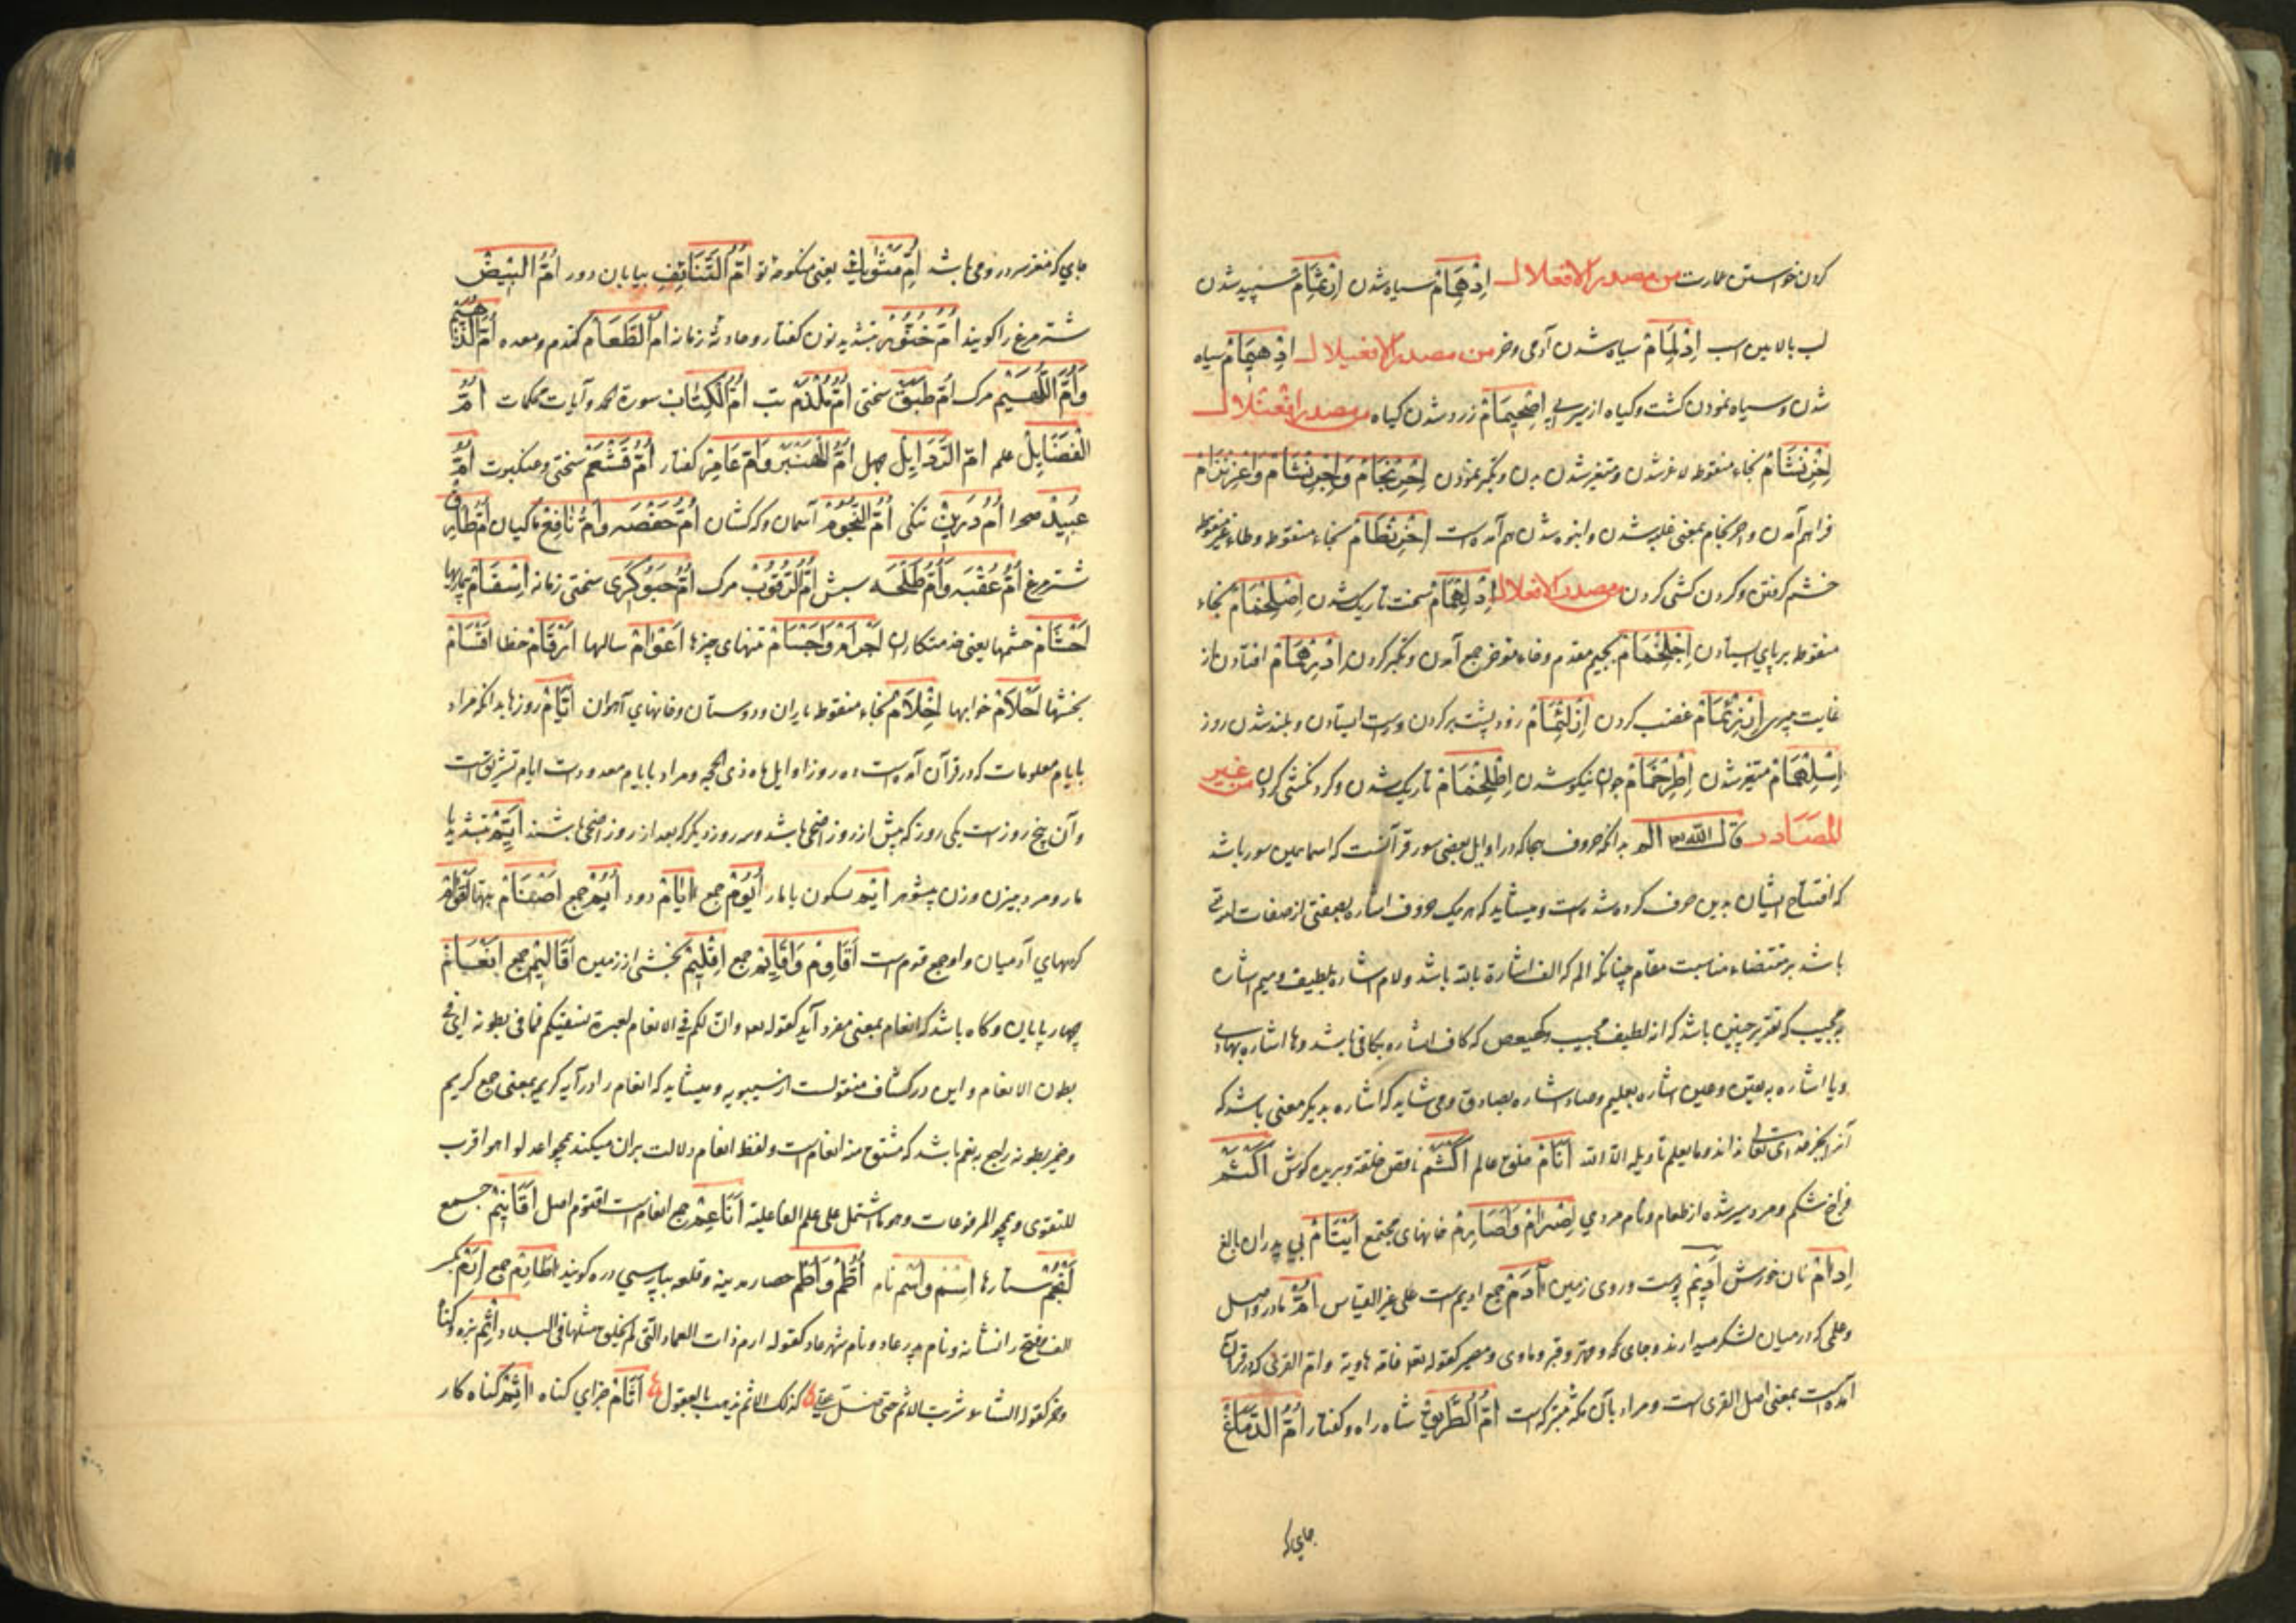 کردن خواستن عمارت من مصدر الافعلال اِدْهِمَامْ سیاه شدن اِرْثِمَامْ سپید شدن
لب بالایین اسب اِدْلِمَامْ سیاه شدن آدمی و خر من مصدر الافعیلال اِدْهِیمَامْ سیاه
شدن و سیاه نمودن کشت و کیاه از سیرابی اِصْحِیمَامْ زرد شدن کیاه من مصدر افعنلال
اِخْرِنْشَامْ بخاء منقوطه لاغر شدن و متغیر شدن بدن و تکبر نمودن اِحْرِنْجَامْ وَاِجْرِنْثَامْ وَاعْرِنْزَامْ
فراهم آمدن و احرنجام بمعنی غلبه شدن و انبوه شدن هم آمده است اِخْرِنْطَامْ بخاء منقوطه و طاء غیر منقوطه
خشم کرفتن و کردن کشی کردن من مصدر الافعلال اِدْلِهْمَامْ سخت تاریک شدن اِصْلِخْمَامْ بخاء
منقوطه بر پای ایستادن اِجْلِخْمَامْ بجیم مقدم و خاء موخر جمع آمدن و تکبر کردن اِدْرِهْمَامْ افتادن از
غایت پیری اِزْرِئْمَامْ غضب کردن اِزْلِئْمَامْ زود پشت بر کردن و راست ایستادن و بلند شدن روز
اِسْلِهْمَامْ متغیر شدن اِطْرِخْمَامْ جوان نیکو شدن اِطْلِخْمَامْ تاریک شدن و کردنکشی کردن من غیر
المَصَادر قال الله الم بدانکه حروف هجا که در اوایل بعضی سور قرآنست که اسامی این سور باشد
که افتتاح ایشان بدین حرف کرده شده است و میشاید که هر یک حروف اشاره بصفتی از صفات
باشد بر مقتضاء مناسبت مقام چنانکه الم که الف اشارة بالله باشد و لام اشاره بلطیف و میم اشاره
بمجیب که تقریر چنین باشد که انه لطیف مجیب و کهیعص که کاف اشاره بکافی باشد و ها اشاره بهادی
و یا اشاره به یقین و عین اشاره بعلیم و صاد اشاره بصادق و می شاید که اشاره بدیکر معنی باشد که
آنرا بجز خدای تعالی نداند و ما یعلم تاویله الا الله اَنَامْ خلق عالم اَکْشَمْ ناقص خلقة و بریده کوش اَکْثَمْ
فراخ شکم و مرد سیر شده از طعام و نام مردمی اِصْرَامْ وَاَصَارِمْ خانهای مجتمع اَیْتَامْ بی پدران نابالغ
اِدَامْ نان خورش اَدِیْمْ پوست و روی زمین اَدَمْ جمع ادیم است علی غیر القیاس اُمّْ مادر و اصل
و علمی که در میان لشکر میدارند و جای که و مهتر و قبر و ماوی و مصیر کقوله تعالی فامه هاویة و ام القری که در قرآن
آمده است بمعنی اصل القری است و مراد بآن مکه متبرکه است اُمُّ الطَّرِیقْ شاه راه و کفتار اُمُّ الدِّمَاغْ
جای که
جای که مغز سر در و می باشد اُمُّ مَثْوَاكْ یعنی منکوحه تو اُمُّ التَّنَائِفِ بیابان دور اُمُّ البَیْضْ
شترمرغ را کویند اُمُّ خَنُّوْرْ بتشدید نون کفتار و حادثه زمانه اُمُّ الطَّعَامْ کندم و معده اُمُّ الدُّهَیْمْ
وَاُمُّ اللُّهَیْمْ مرک اُمُّ طَبَقْ سختی اُمُّ مِلْدَمْ تب اُمُّ الکِتَابْ سورة الحمد و آیات محکمات اُمُّ
الْفَضَایِلْ علم اُمُّ الرَّذَایِلْ جهل اُمُّ الهِنْبَرْ وَاُمُّ عَامِرْ کفتار اُمُّ قَشْعَمْ سختی و عنکبوت اُمُّ
عُبَیْدْ صحرا اُمُّ دَرْزِینْ نیکی اُمُّ النُّجُوْمْ آسمان و کهکشان اُمُّ حَفْصَه وَاُمُّ نَافِعْ ماکیان
شترمرغ اُمُّ عُقْبَه وَاُمُّ طَلْحَه سبش اُمُّ الرَّقُوْبْ مرک اُمُّ حَبَوْکَرَی سختی زمانه اَسْقَامْ بیماریها
اَحْشَامْ حشمها یعنی خدمتکاران اَجْرَامْ وَاَجْسَامْ تنهای چیزها اَعْوَامْ سالها اَرْقَامْ خطها اَقْسَامْ
بخشها اَحْلَامْ خوابها اَخْلَامْ بخاء منقوطه یاران و دوستان و خانهای آهوان اَیَّامْ روزها بدانکه مراد
بایام معلومات که در قرآن آمده است ده روز اوایل ماه ذی الحجه و مراد بایام معدودات ایام تشریق است
و آن پنج روز است یکی روز که پیش از روز اضحی باشد و سه روز دیکر که بعد از روز اضحی باشند اَیِّمْ بتشدید یا
مار و مرد بی زن و زن بیشوهر اَیْمْ بسکون یا مار اُیُوْمْ جمع اِیَامْ دود اُیُمْ جمع اَصْنَامْ بتها اَقْوَامْ
کروههای آدمیان و او جمع قوم است اَقَاوِمْ وَاَقَایِمْ جمع اِقْلِیْمْ بخشی از زمین اَقَالِیْمْ جمع اَنْعَامْ
چهارپایان و کاه باشد که انعام بمعنی مفرد آید کقوله تعالی وان لکم فی الانعام لعبرة نسقیکم مما فی بطونه ای فی
بطون الانعام و این در کشاف منقولست از سیبویه و میشاید که انعام را در آیه کریمه بمعنی جمع کریم
و ضمیر بطونه راجع به نعم باشد که مشتق منه انعام است و لفظ انعام دلالت بران میکند همچو اعدلوا هو اقرب
للتقوی و همچو المرفوعات و هو ما اشتمل علی علم الفاعلیة اَنَاعِیْمْ جمع انعام است اقنوم اصل اَقَانِیْمْ جمع
اَنْجُمْ ستارها اِسْمْ وَاُسْمْ نام اُطُمْ وَاُطْمْ حصار مدینه و قلعه بپارسی دره کویند اٰطَامْ جمع اِرَمْ بکسر
الف و فتح را نشانه و نام پدر عاد و نام شهر عاد کقوله ارم ذات العماد التی لم یخلق مثلها فی البلاد اِثْمْ بزه و کناه
و خمر کقوله الشاعر شربت الاثم حتی ضل عقلی کذلك الاثم یذهب بالعقول اَثَامْ جزای کناه اٰثِمْ کناه کار